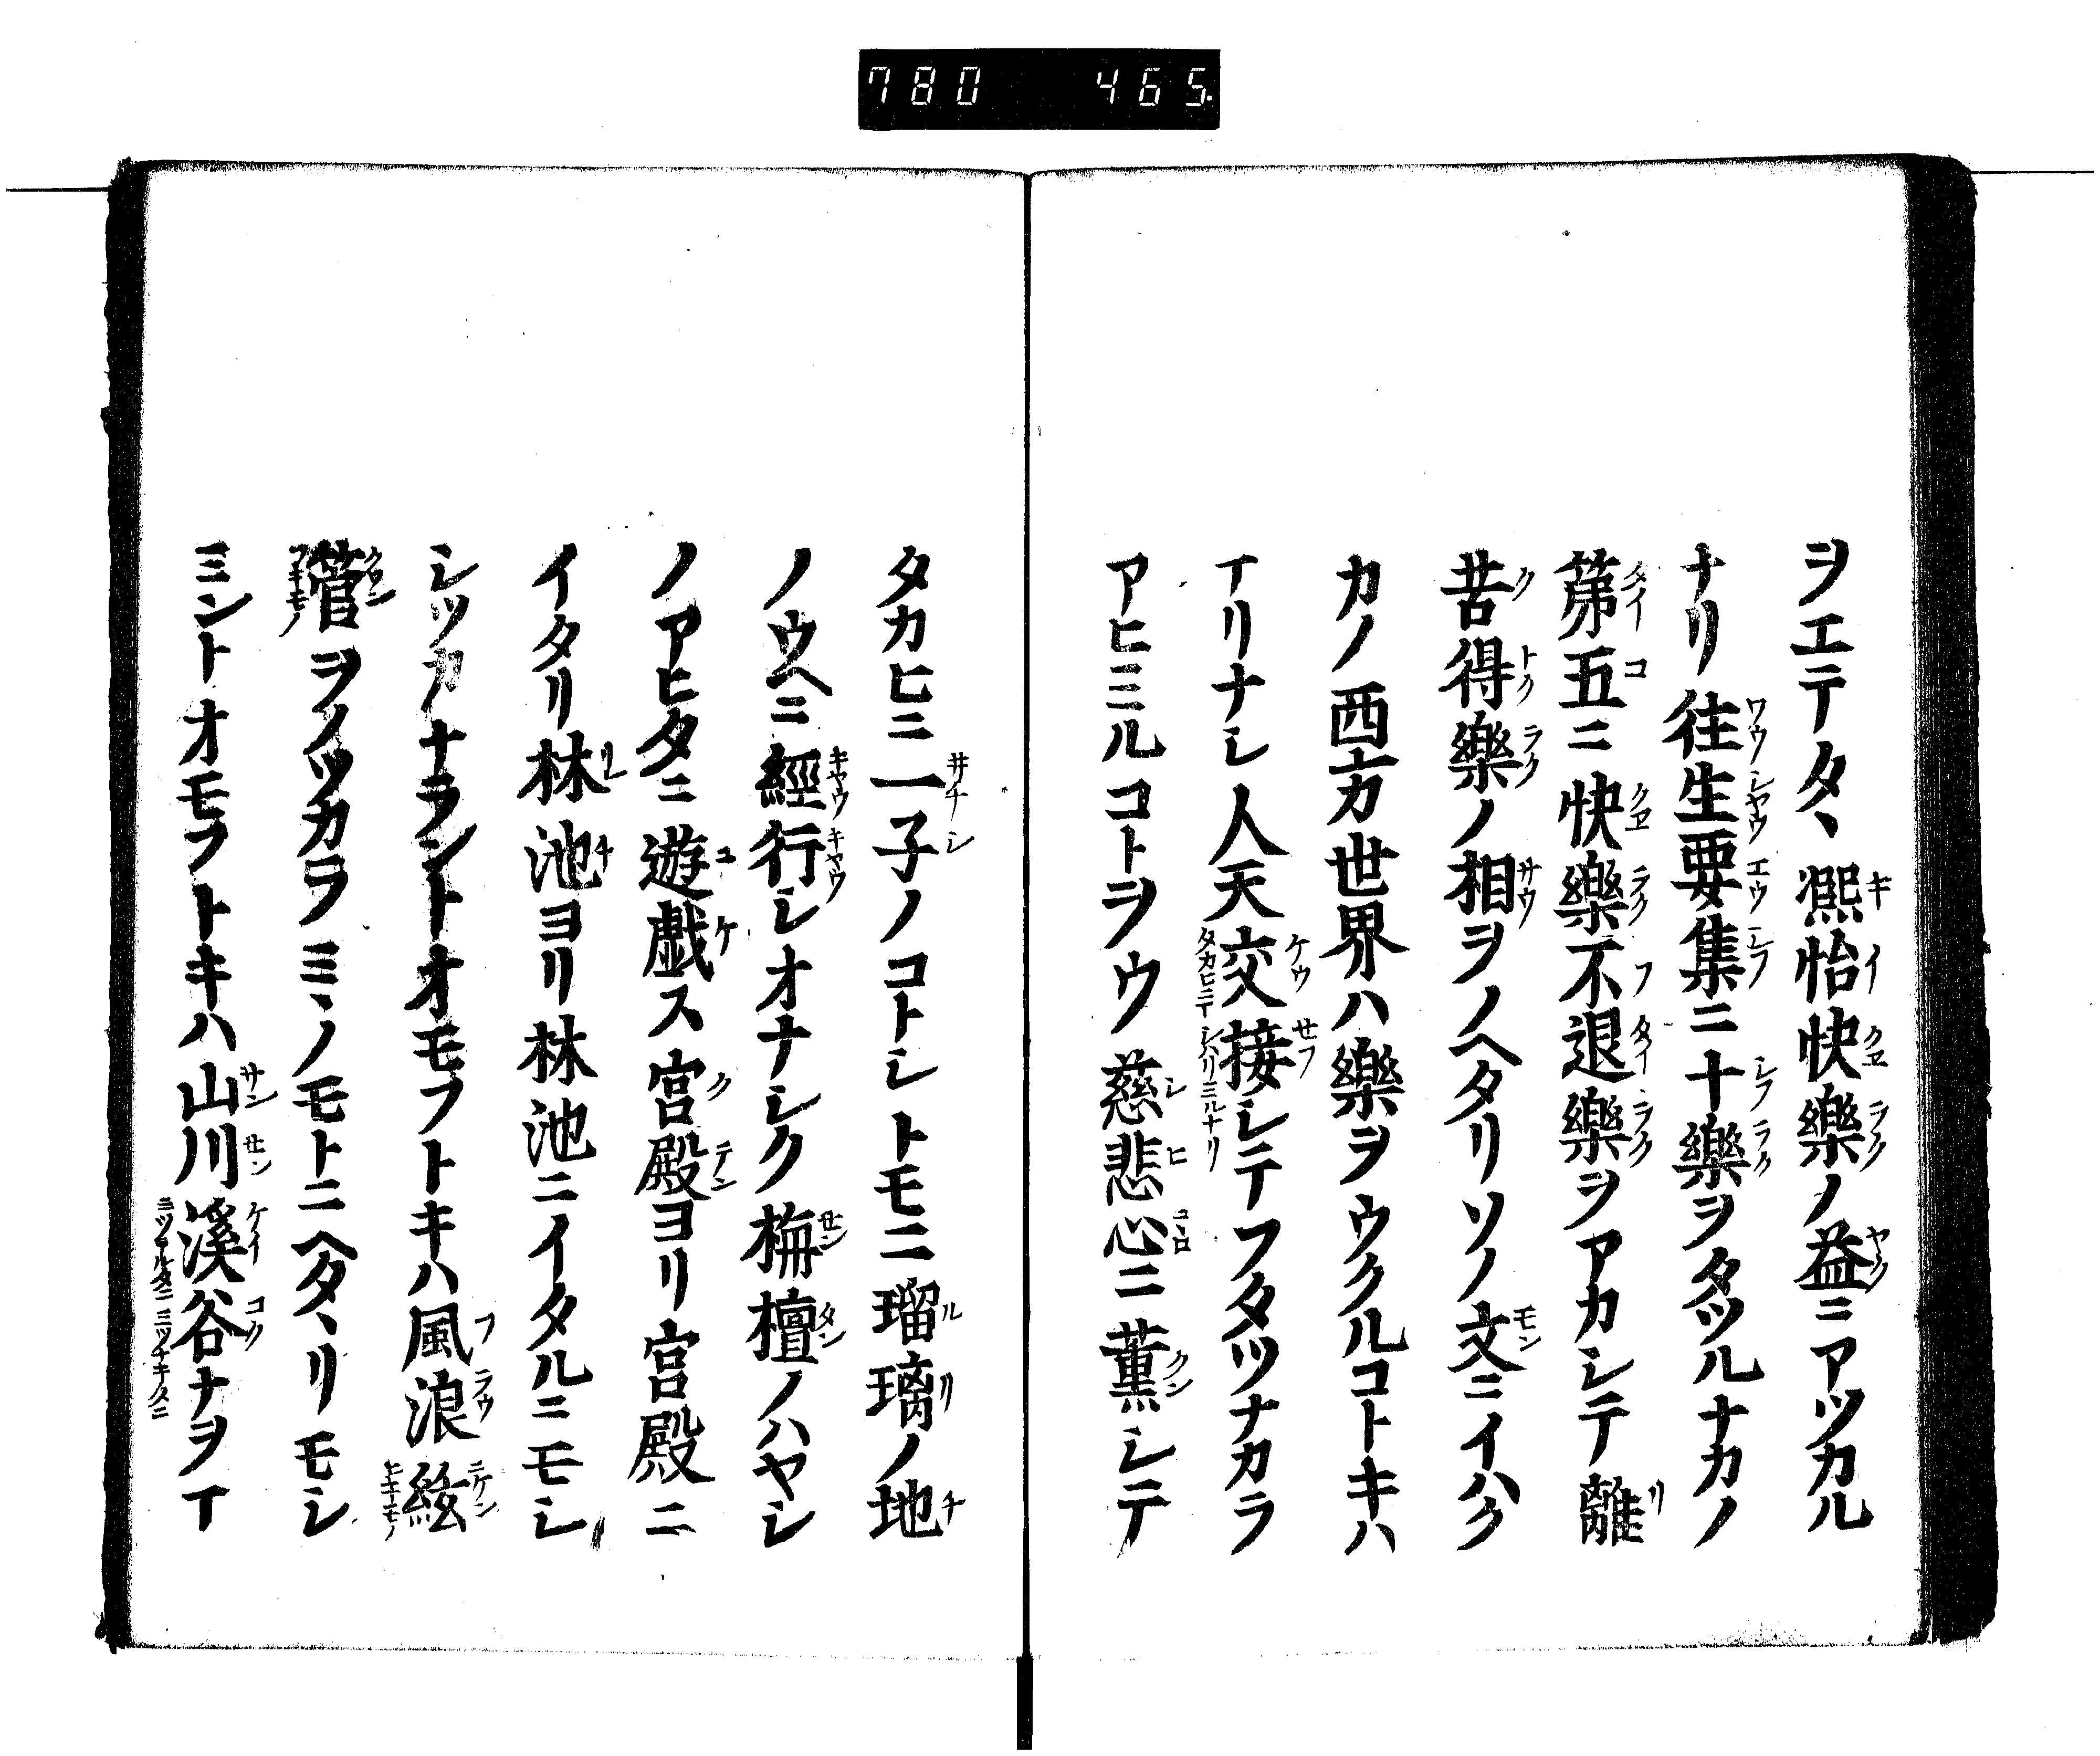 780 465
ヲエテタヽ凞怡快樂ノ益ニアツカル
ナリ往生要集ニ十樂ヲタツルナカノ
第五ニ快樂不退樂ヲアカシテ離
苦得樂ノ相ヲノヘタリソノ文ニイハク
カノ西方世界ハ樂ヲウクルコトキハ
マリナシ人天交接シテフタツナカラ
アヒミルコトヲウ慈悲心ニ薫シテ
タカヒニ一子ノコトシトモニ瑠璃ノ地
ノウヘニ經行シオナシク栴檀ノハヤシ
ノアヒタニ遊戯ス宮殿ヨリ宮殿ニ
イタリ林池ヨリ林池ニイタルニモシ
シツカナラントオモフトキハ風浪絃
管ヲノツカラミヽノモトニヘタヽリモシ
ミントオモフトキハ山川溪谷ナヲマ